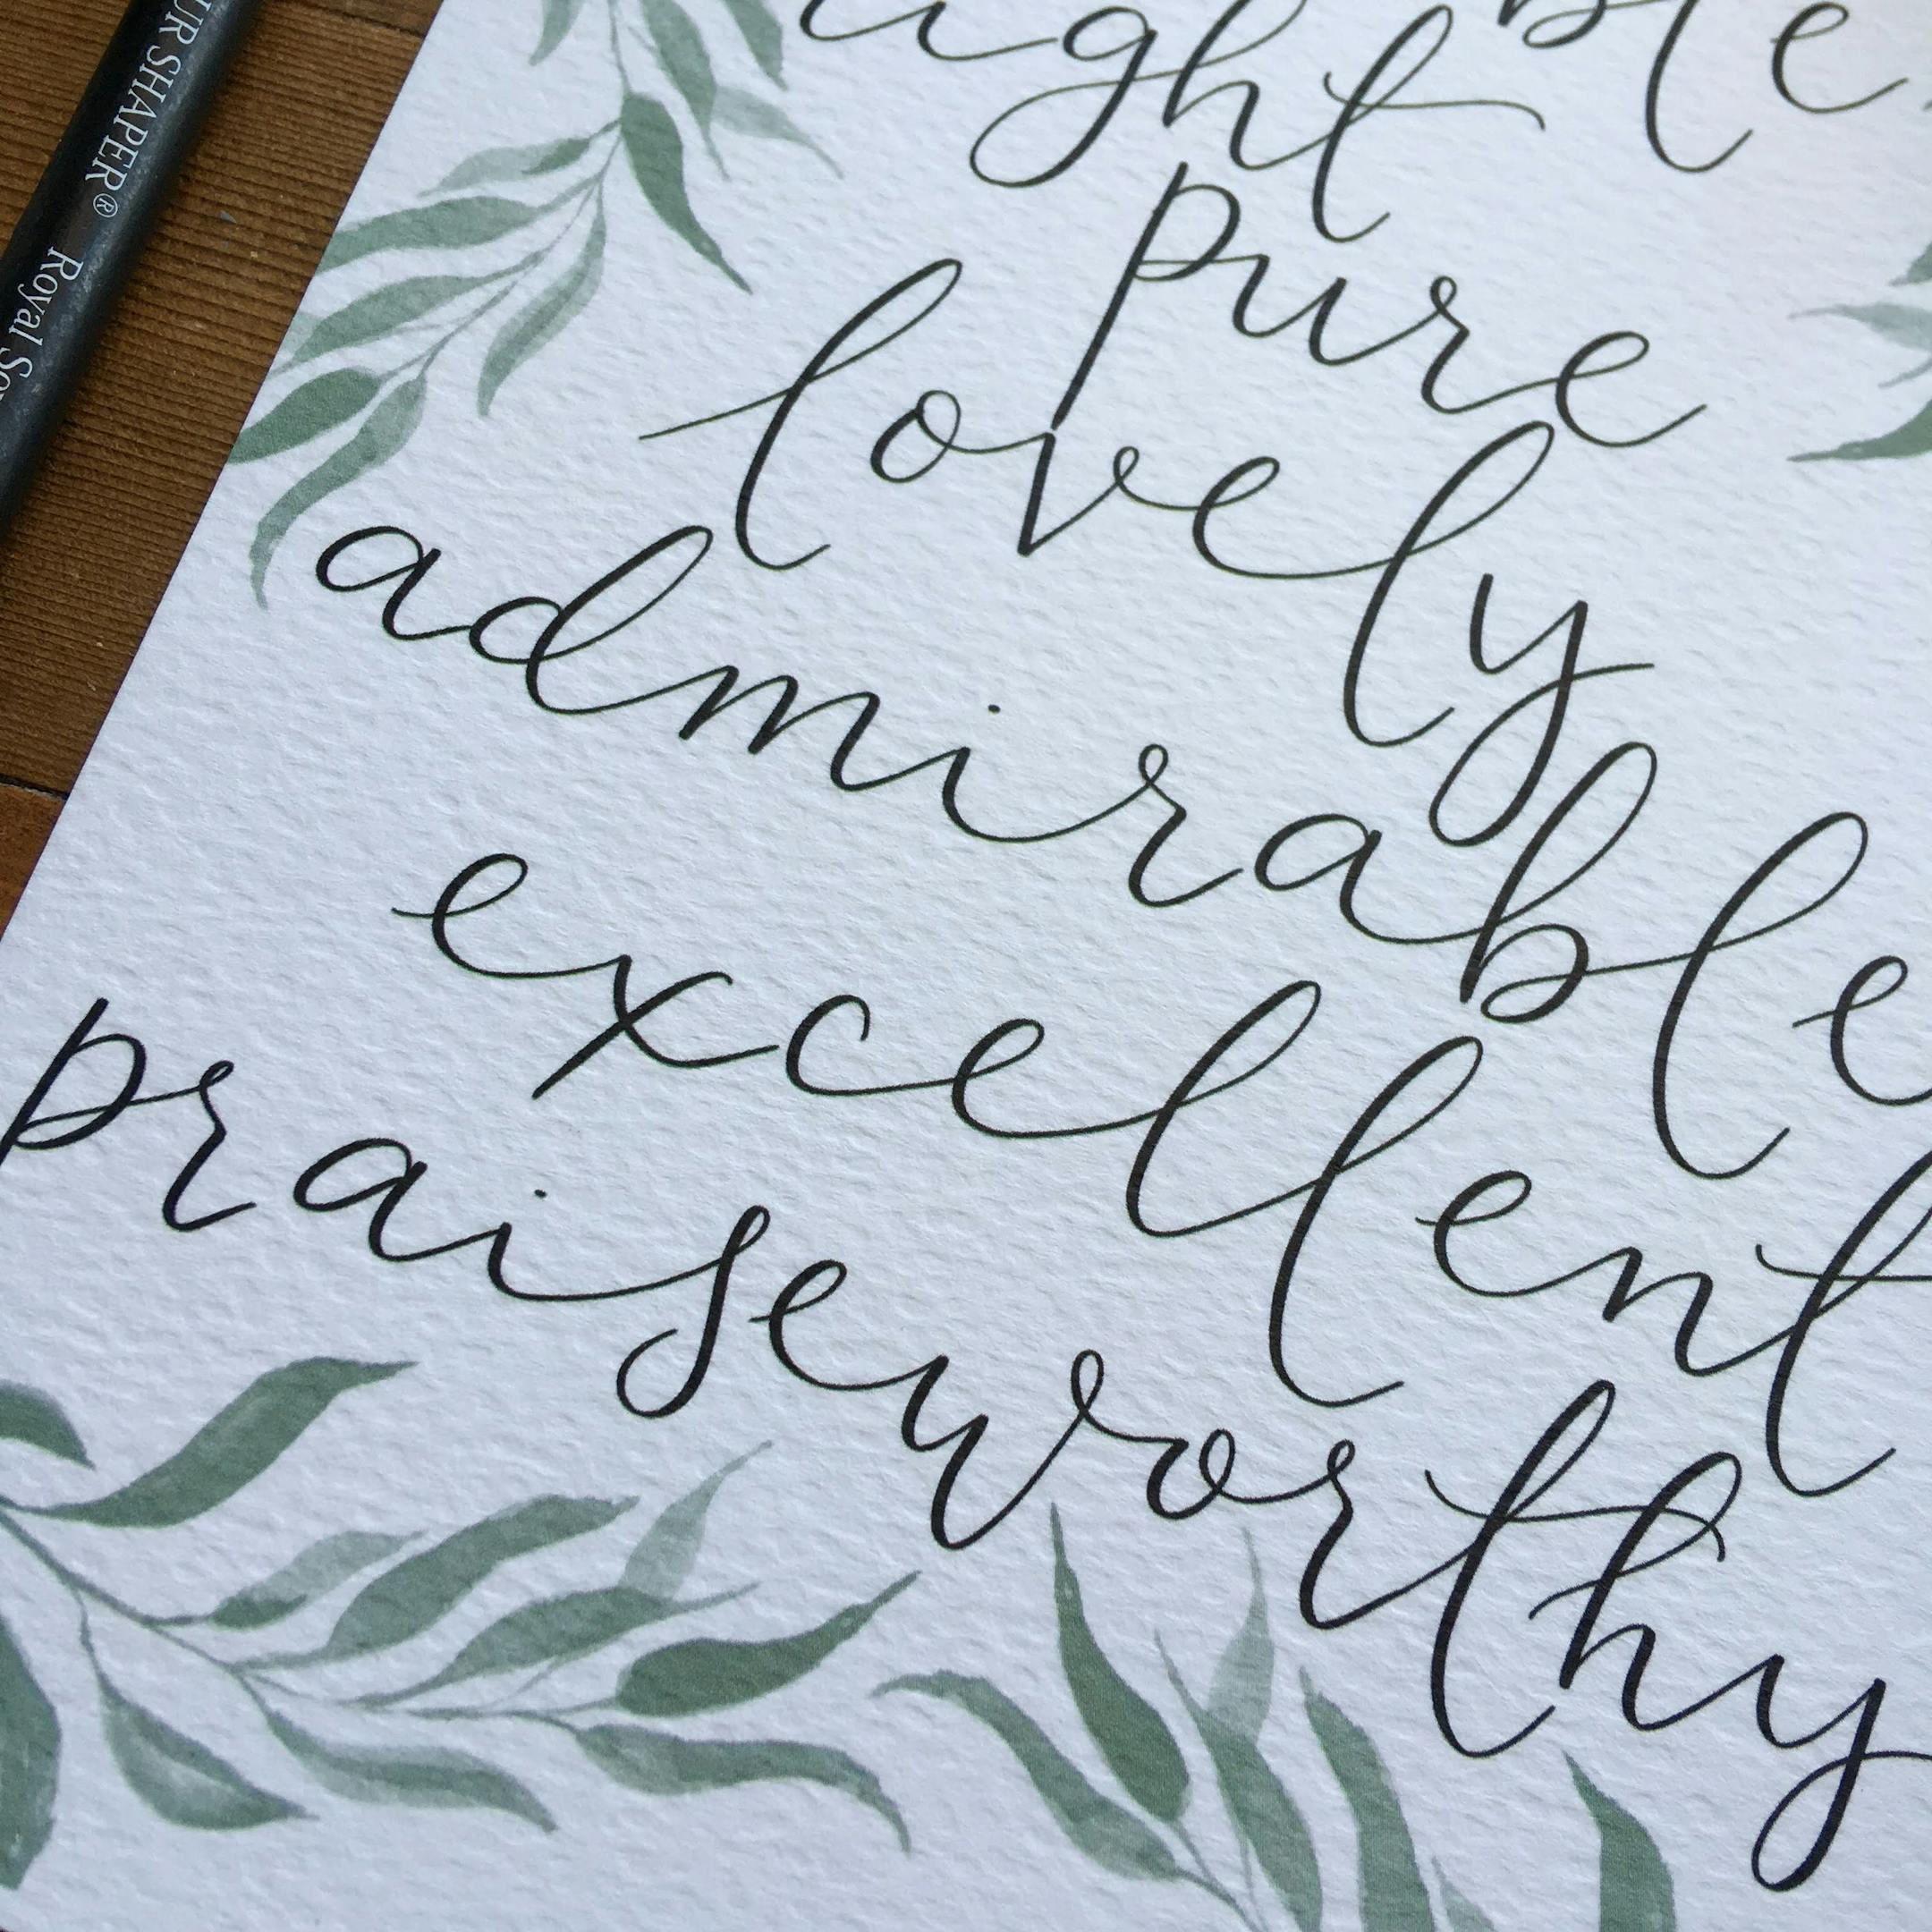 right
pure
lovely
admirable
excellent
praiseworthy
SHAPER® Royal